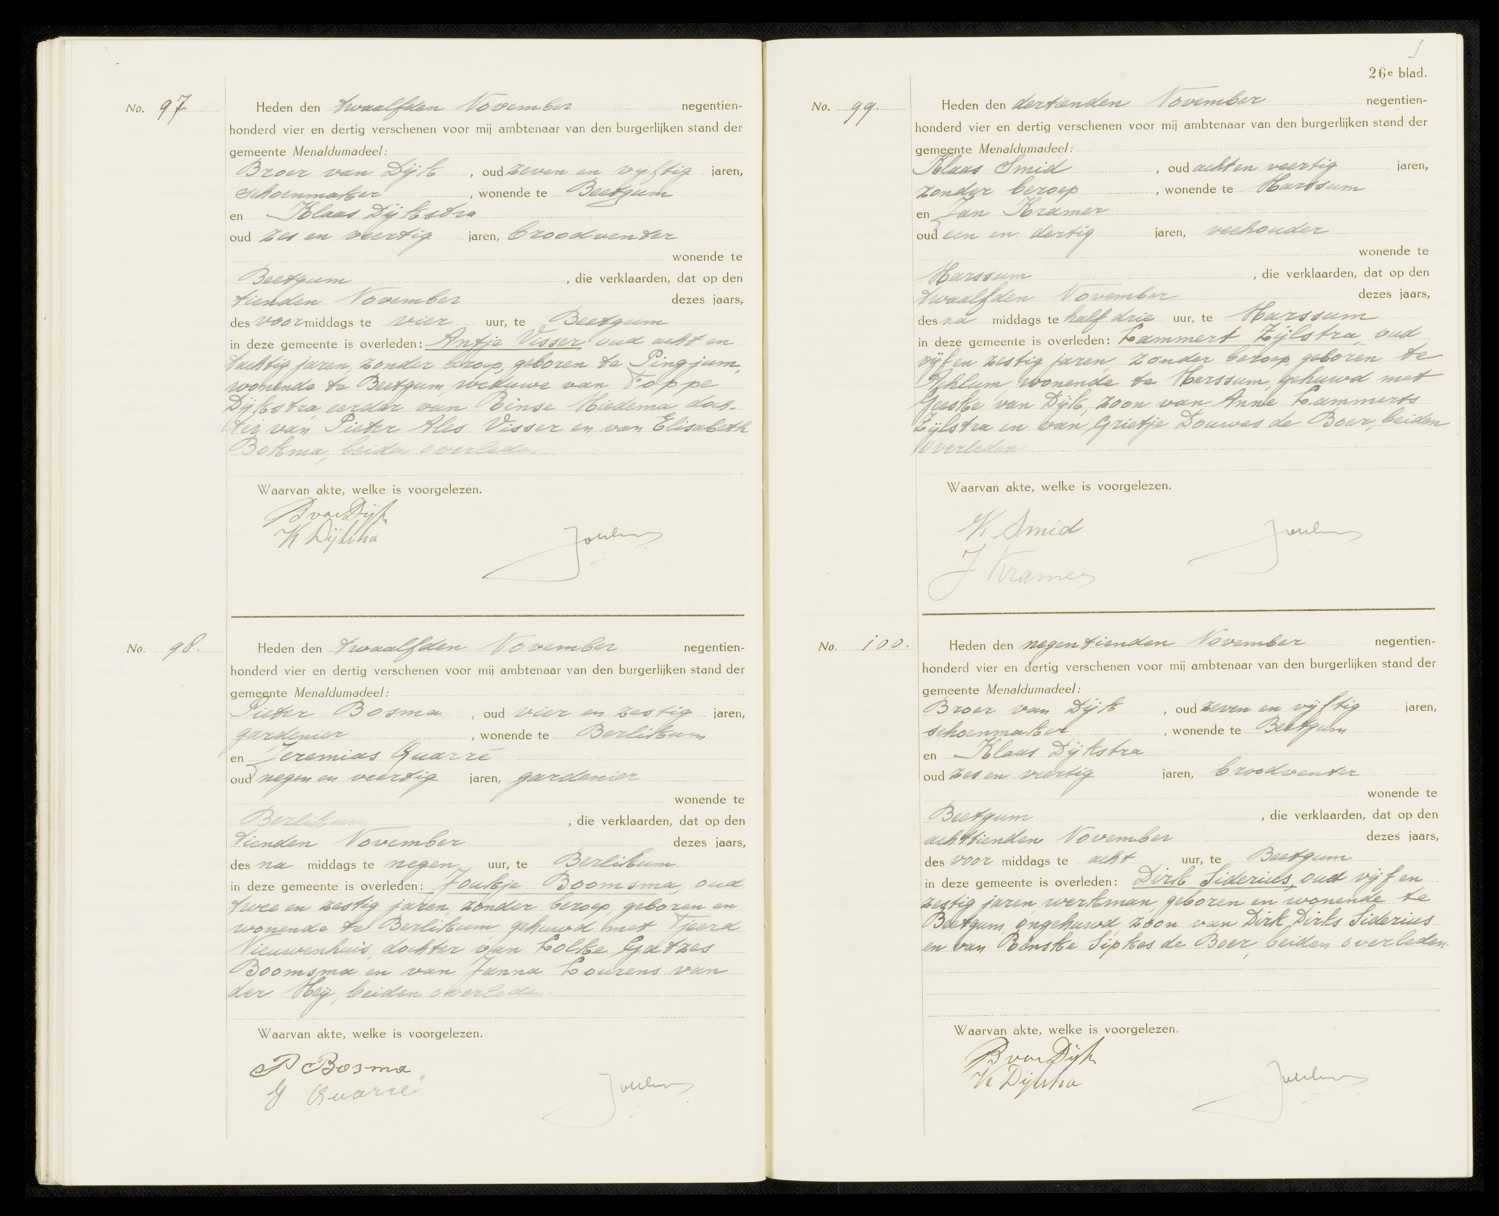 No. 97
Heden den twaalfden November negentien-
honderd vier en dertig verschenen voor mij ambtenaar van den burgerlijken stand der
gemeente Menaldumadeel:
Broer van Dijk, oud zeven en vijftig jaren,
schoenmaker, wonende te Beetgum
en Klaas Dijkstra
oud zes en veertig jaren, broodventer
wonende te
Beetgum, die verklaarden, dat op den
tienden November dezes jaars,
des voormiddags te vier uur, te Beetgum
in deze gemeente is overleden: Antje Visser, oud acht en
tachtig jaren, zonder beroep, geboren te Pingjum,
wonende te Beetgum, weduwe van Foppe
Dijkstra, eerder van Rinse Hiedema, doch-
ter van Pieter Ales Visser en van Elisabeth
Bokma, beiden overleden.
Waarvan akte, welke is voorgelezen.
B van Dijk
K Dijkstra
No. 98.
Heden den twaalfden November negentien-
honderd vier en dertig verschenen voor mij ambtenaar van den burgerlijken stand der
gemeente Menaldumadeel:
Pieter Bosma, oud vier en zestig jaren,
gardenier, wonende te Berlikum
en Jeremias Quarré
oud negen en veertig jaren, gardenier
wonende te
Berlikum, die verklaarden, dat op den
tienden November dezes jaars,
des na middags te negen uur, te Berlikum
in deze gemeente is overleden: Joukje Boomsma, oud
twee en zestig jaren, zonder beroep, geboren en
wonende te Berlikum, gehuwd met Tjeerd
Nieuwenhuis, dochter van Folke IJdtzes
Boomsma en van Janna Lourens van
der Heij, beiden overleden.
Waarvan akte, welke is voorgelezen.
P Bosma
J Quarré
26e blad.
No. 99.
Heden den dertienden November negentien-
honderd vier en dertig verschenen voor mij ambtenaar van den burgerlijken stand der
gemeente Menaldumadeel:
Klaas Smid, oud acht en veertig jaren,
zonder beroep, wonende te Marssum
en Jan Kramer
oud een en dertig jaren, veehouder
wonende te
Marssum, die verklaarden, dat op den
twaalfden November dezes jaars,
des na middags te half drie uur, te Marssum
in deze gemeente is overleden: Lammert Zijlstra, oud
vijf en zestig jaren, zonder beroep, geboren te
Achlum wonende te Marssum, gehuwd met
Geeske van Dijk, zoon van Anne Lammerts
Zijlstra en van Grietje Douwes de Boer, beiden
overleden.
Waarvan akte, welke is voorgelezen.
K Smid
J Kramer
No. 100.
Heden den negentienden November negentien-
honderd vier en dertig verschenen voor mij ambtenaar van den burgerlijken stand der
gemeente Menaldumadeel:
Broer van Dijk, oud zeven en vijftig jaren,
schoenmaker, wonende te Beetgum
en Klaas Dijkstra
oud zes en veertig jaren, broodventer
wonende te
Beetgum, die verklaarden, dat op den
achttienden November dezes jaars,
des voor middags te acht uur, te Beetgum
in deze gemeente is overleden: Dirk Siderius, oud vijf en
zestig jaren werkman, geboren en wonende te
Beetgum, ongehuwd, zoon van Dirk Dirks Siderius
en van Renske Sipkes de Beer, beiden overleden.
Waarvan akte, welke is voorgelezen.
B van Dijk
K Dijkstra